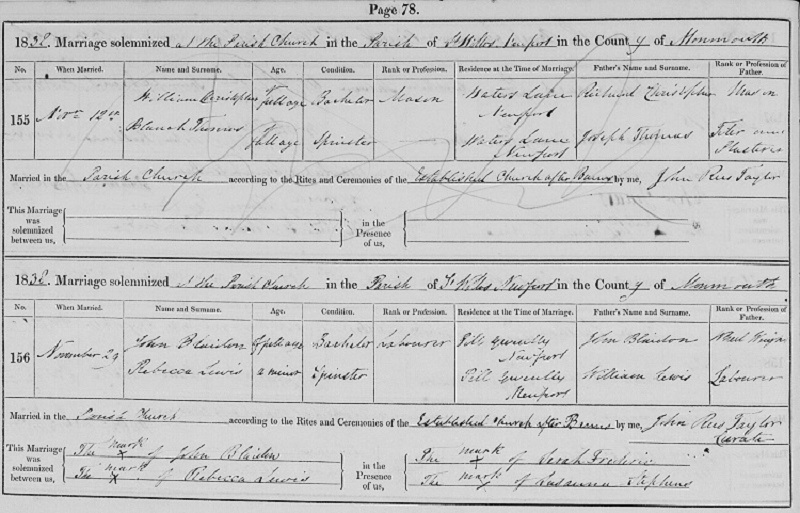 Page 78.
1838. Marriage solemnized at the Parish Church in the Parish of St Wllos Newport in the County of Monmouth
No. When Married. Name and Surname. Age. Condition. Rank or Profession. Residence at the Time of Marriage. Father's Name and Surname. Rank or Profession of Father.
155 Novr 12th William Christopher of full age Bachelor Mason Waters Lane Newport Richard Christopher Mason
Blanch Thomas full age Spinster Waters Lane Newport Joseph Thomas Tiler and Plasterer
Married in the Parish Church according to the Rites and Ceremonies of the Established Church after Banns by me, John Rees Taylor
This Marriage was solemnized between us, in the Presence of us,
1838. Marriage solemnized at the Parish Church in the Parish of St Wllos Newport in the County of Monmouth
No. When Married. Name and Surname. Age. Condition. Rank or Profession. Residence at the Time of Marriage. Father's Name and Surname. Rank or Profession of Father.
156 November 29 John Blaidon of full age Bachelor Labourer Pill Newport John Blaidon
Rebecca Lewis a minor Spinster Pill Newport William Lewis Labourer
Married in the Parish Church according to the Rites and Ceremonies of the Established Church after Banns by me, John Rees Taylor Curate
This Marriage was solemnized between us, The mark X of John Blaidon in the Presence of us, The mark X of Sarah
The mark X of Rebecca Lewis The mark X of Susanna Stephens